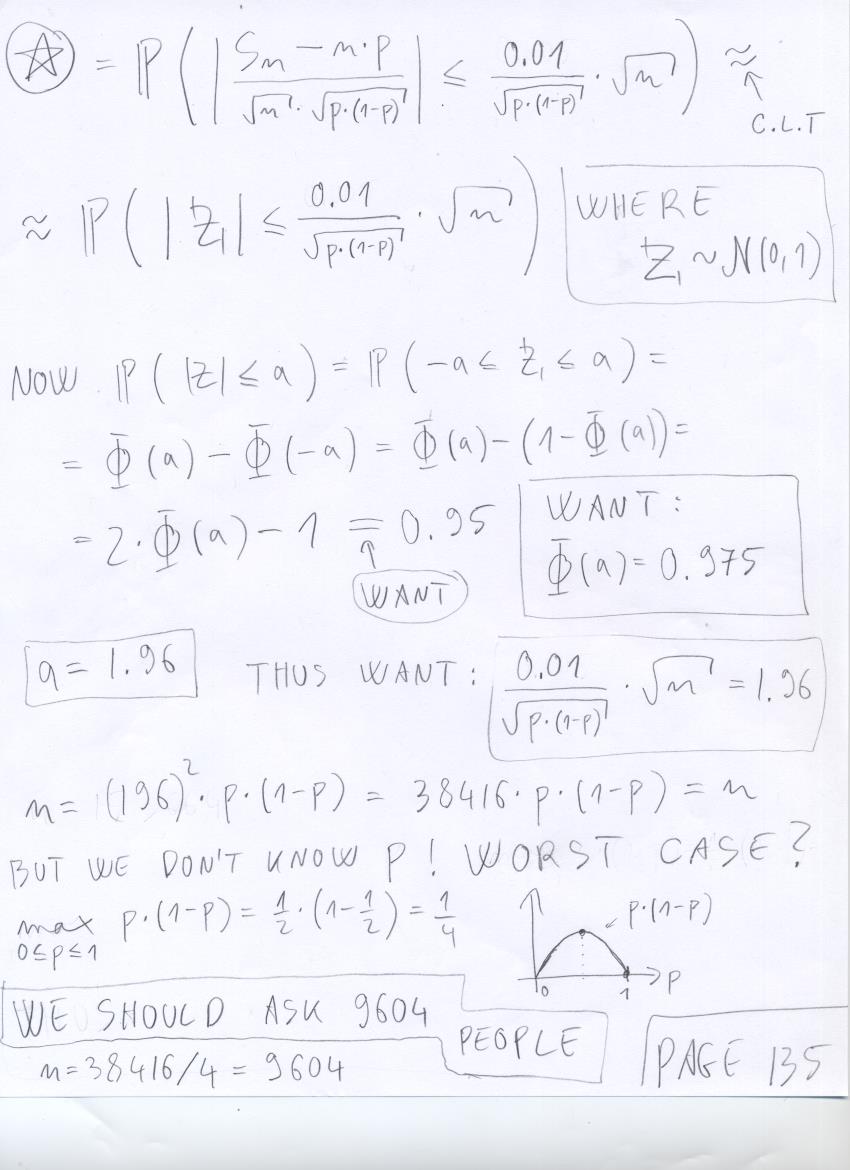 ☆ = ℙ( | (Sn − n·p) / (√n · √(p·(1−p))) | ≤ 0.01/√(p·(1−p)) · √n ) ≈
C.L.T
≈ ℙ( |Z₁| ≤ 0.01/√(p·(1−p)) · √n )
WHERE
Z₁ ~ N(0,1)
NOW ℙ( |Z| ≤ a ) = ℙ( −a ≤ Z₁ ≤ a ) =
= Φ(a) − Φ(−a) = Φ(a) − (1−Φ(a)) =
= 2·Φ(a) − 1 = 0.95
WANT
WANT:
Φ(a) = 0.975
a = 1.96
THUS WANT: 0.01/√(p·(1−p)) · √n = 1.96
n = (196)²· p·(1−p) = 38416· p·(1−p) = n
BUT WE DON'T KNOW P! WORST CASE?
max p·(1−p) = 1/2·(1−1/2) = 1/4
0≤p≤1
p·(1−p)
0 1 p
WE SHOULD ASK 9604
PEOPLE
n = 38416/4 = 9604
PAGE 135